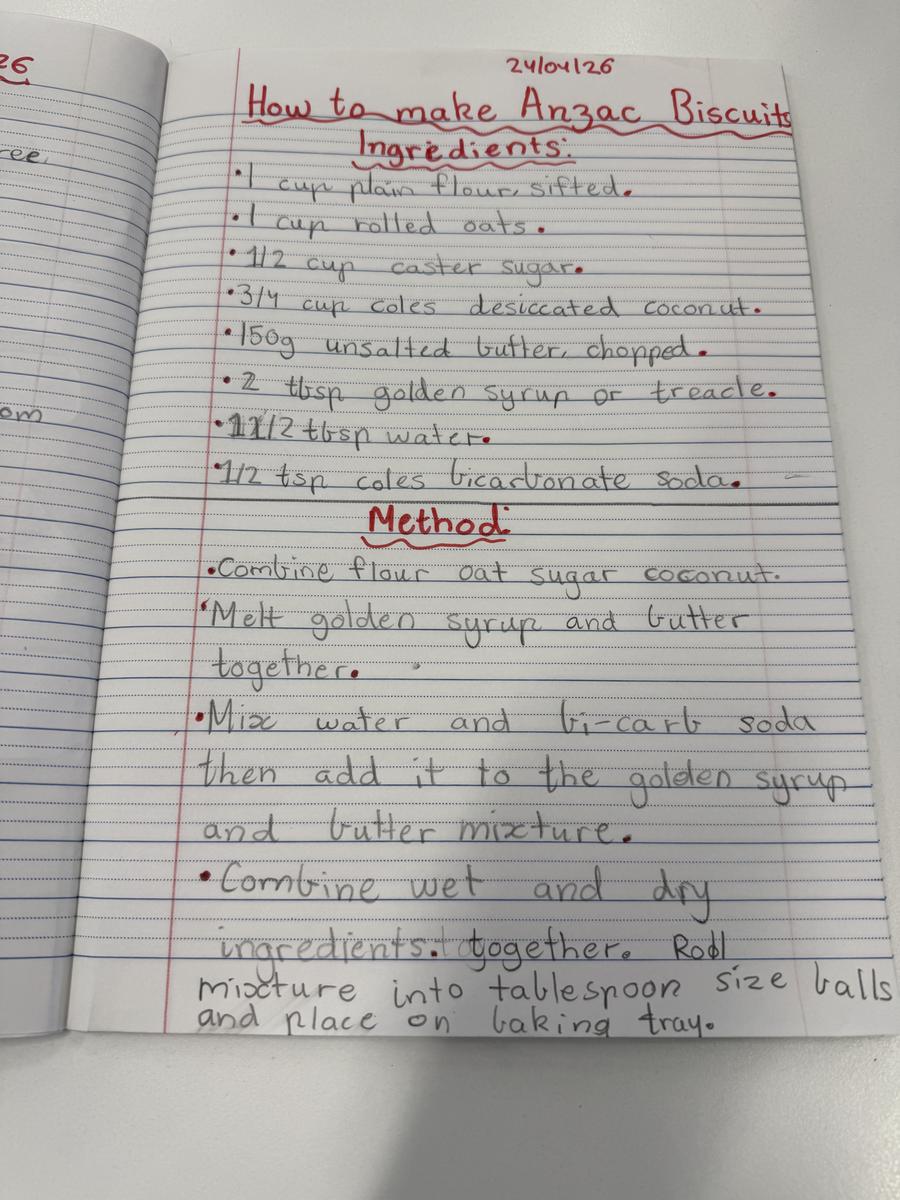 26
ree
om
24/04/26
How to make Anzac Biscuits
Ingredients:
•1 cup plain flour, sifted.
•1 cup rolled oats.
•1/2 cup caster sugar.
•3/4 cup coles desiccated coconut.
•150g unsalted butter, chopped.
•2 tbsp golden syrup or treacle.
•1 1/2 tbsp water.
•1/2 tsp coles bicarbonate soda.
Method:
•Combine flour oat sugar coconut.
•Melt golden syrup and butter
together.
•Mix water and bi-carb soda
then add it to the golden syrup
and butter mixture.
•Combine wet and dry
ingredients. together. Roll
mixture into tablespoon size balls
and place on baking tray.